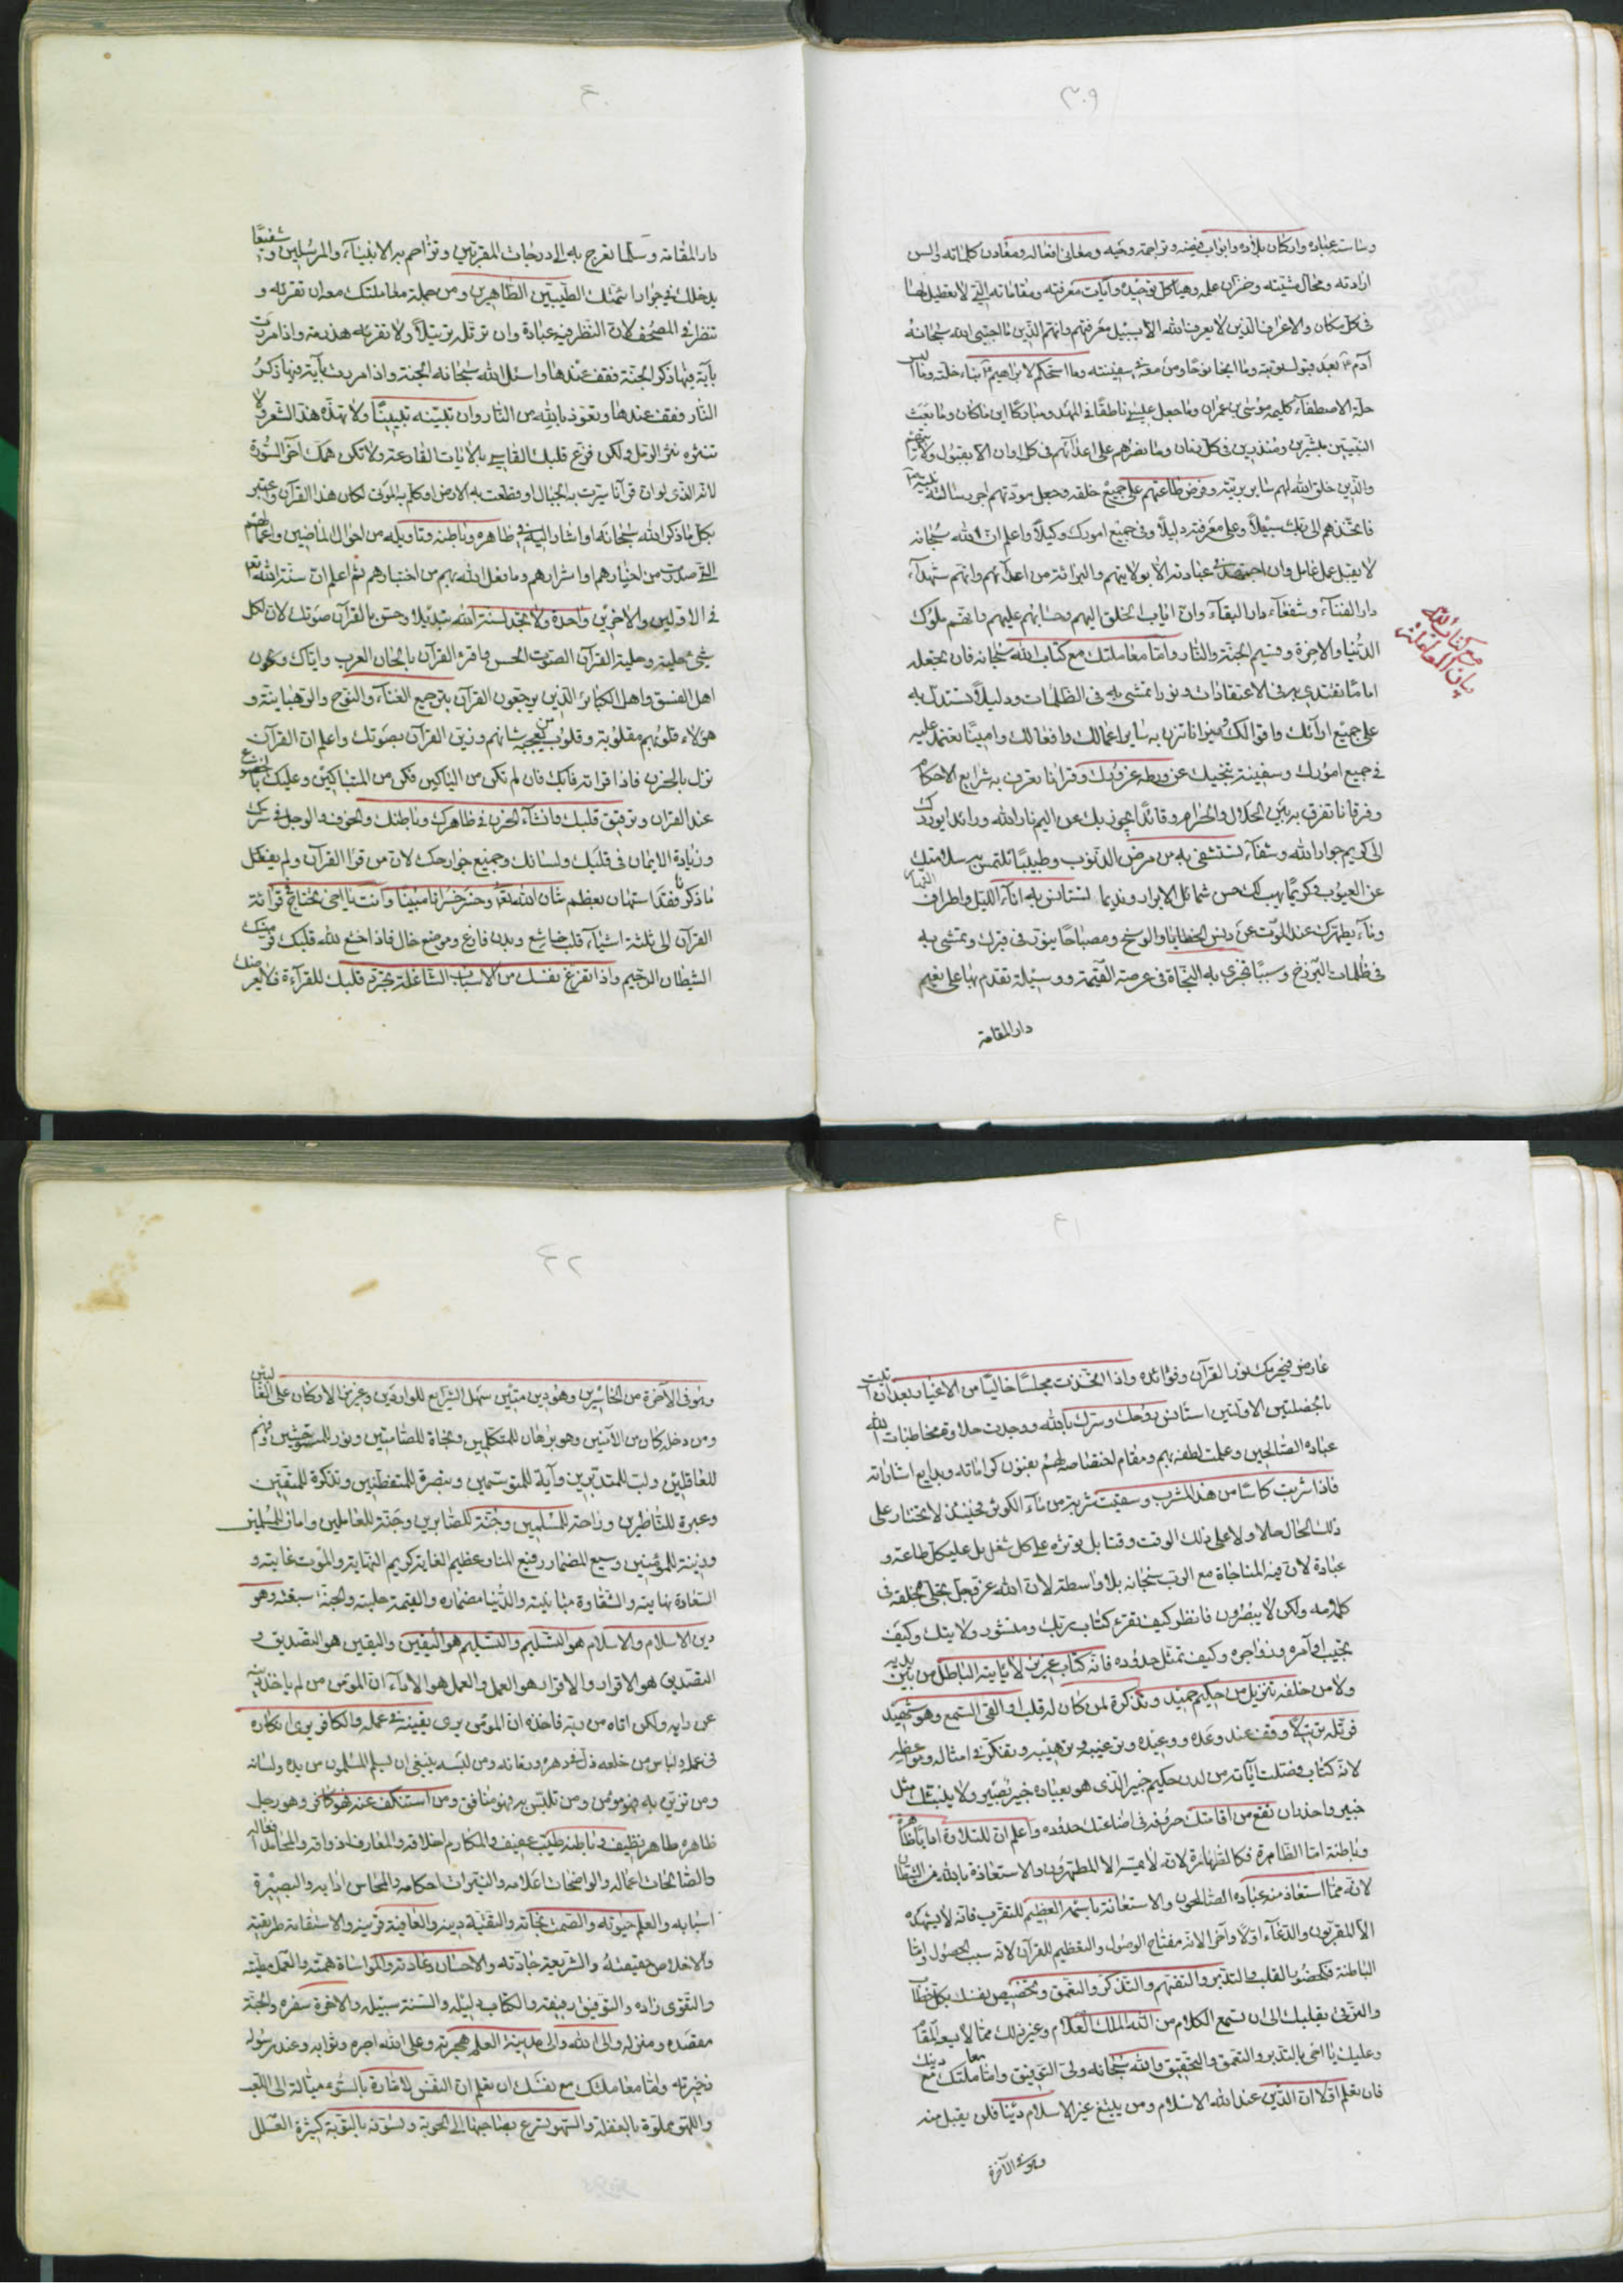 ٣٠٩
وساسة عباده واركان بلاده وابواب فيضه وتراجمة وحيه ومعانى افعاله ومعادن كلماته والسن
ارادته ومحال مشيته وخزان علمه وهياكل توحيده وآيات معرفته ومقاماته التى لا تعطيل لها
فى كل مكان والاعراف الذين لا يعرف الله الا بسبيل معرفتهم وانهم الذين ما اجتبى الله سبحانه
آدم بعد قبول توبته وما انجا نوحا ومن معه فى سفينته وما استحكم لابراهيم بناء خلته وما البس
حلة الاصطفاء كليمه موسى بن عمران وما جعل عيسى ناطقا فى المهد ومباركا اين ما كان وما بعث
النبيين مبشرين ومنذرين فى كل زمان وما نصرهم على اعدائهم فى كل اوان الا بقبول ولايتهم
والذين خلق الله لهم ساير بريته وفرض طاعتهم على جميع خلقه وجعل مودتهم اجر رسالة نبيه
فاتخذهم الى ربك سبيلا وعلى معرفته دليلا وفى جميع امورك وكيلا واعلم ان الله سبحانه
لا يقبل عمل عامل وان اجتهد فى عبادته الا بولايتهم والبرائة من اعدائهم وانهم شهداء
دار الفناء وشفعاء دار البقاء وان اياب الخلق اليهم وحسابهم عليهم وانهم ملوك
الدنيا والآخرة وقسيم الجنة والنار واما معاملتك مع كتاب الله سبحانه فان تجعله
اماما تقتدى به فى الاعتقادات ونورا تمشى به فى الظلمات ودليلا تستدل به
على جميع ارائك واقوالك وميزانا تزن به ساير اعمالك وافعالك وامينا تعتمد عليه
فى جميع امورك وسفينة تنجيك عن ورطة غرورك وقرانا تعرف به شرايع الاحكام
وفرقانا تفرق به بين الحلال والحرام وقائدا يجوز بك عن اليم نار الله ورائدا يوردك
الى كريم جوار الله وشفاء تستشفى به من مرض الذنوب وطبيبا تلتمس به سلامتك
عن العيوب وكريما يهب لك حسن شمائل الابرار ونديما تستانس به اناء الليل واطراف النهار
وماء يطهرك عند الموت عن دنس الخطايا والوسخ ومصباحا ينور فى قبرك وتمشى به
فى ظلمات البرزخ وسببا تجزى به النجاة فى عرصة القيمة ووسيلة تقدم بها على نعيم
دار المقامة
بيان المعاملة
مع كتاب الله
٤٠
دار المقامة وسلما تعرج به الى درجات المقربين وتزاحم به الانبياء والمرسلين وشفيعا
يدخلك فى جوار ائمتك الطيبين الطاهرين ومن جملة معاملتك معه ان تقرئه و
تنظر فى المصحف لان النظر فيه عبادة وان ترتله ترتيلا ولا تقرئه هذرمة واذا مررت
بآية فيها ذكر الجنة فقف عندها واسئل الله سبحانه الجنة واذا مررت بآية فيها ذكر
النار فقف عندها وتعوذ بالله من النار وان تبينه تبيينا ولا تهذه هذ الشعر ولا
تنثره نثر الرمل ولكن فزع قلبك القاسى بالآيات القارعة ولا تكن همك آخر السورة
لانه الذى لو ان قرآنا سيرت به الجبال او قطعت به الارض او كلم به الموتى لكان هذا القرآن واعتبر
بكل ما ذكر الله سبحانه او اشار اليه فى ظاهره وباطنه وتاويله من احوال الماضين واعمالهم
التى صدرت من اخيارهم واشرارهم وما فعل الله بهم من اختبارهم ثم اعلم ان سنة الله
فى الاولين والآخرين واحدة ولا تجد لسنة الله تبديلا وحسن بالقرآن صوتك لان لكل
شئ حلية وحلية القرآن الصوت الحسن واقرء القرآن بالحان العرب واياك ولحون
اهل الفسق واهل الكبائر الذين يرجعون القرآن بترجيع الغناء والنوح والرهبانية و
هؤلاء قلوبهم مقلوبة وقلوب من يعجبه شانهم وزين القرآن بصوتك واعلم ان القرآن
نزل بالحزن فاذا قراته فابك فان لم تكن من الباكين فكن من المتباكين وعليك بالخضوع
عند القرآن وترقيق قلبك وانشاء الحزن فى ظاهرك وباطنك والخوف والوجل فى سرك
وزيادة الايمان فى قلبك ولسانك وجميع جوارحك لان من قرا القرآن ولم يفعل
ما ذكرنا فقد استهان بعظم شان الله وخسر خسرانا مبينا وانت يا اخى تحتاج فى قرائة
القرآن الى ثلثة اشياء قلب خاشع وبدن فارغ وموضع خال فاذا خشع لله قلبك فر منك
الشيطان الرجيم واذا تفرغ نفسك من الاسباب الشاغلة تجرد قلبك للقرآءة فلا يعرضك
٤١
عارض فيحرمك نور القرآن وفوائده واذا اتخذت مجلسا خاليا من الاغيار بعد ان اتيت
بالخصلتين الاوليين استانس روحك وسرك بالله ووجدت حلاوة مخاطبات الله
عباده الصالحين وعلمت لطفه بهم ومقام اختصاصه لهم بفنون كراماته وبدايع اشاراته
فاذا شربت كاسا من هذا المشرب وسقيت شربة من ماء الكوثر فحينئذ لا تختار على
ذلك الحال حالا ولا على ذلك الوقت وقتا بل تؤثره على كل شغل بل على كل طاعة و
عبادة لان فيه المناجاة مع الرب سبحانه بلا واسطة لان الله عز وجل تجلى لخلقه فى
كلامه ولكن لا يبصرون فانظر كيف تقرء كتاب ربك ومنشور ولايتك وكيف
تجيب اوامره وزواجره وكيف تمتثل حدوده فانه كتاب عزيز لا ياتيه الباطل من بين يديه
ولا من خلفه تنزيل من حكيم حميد وتذكرة لمن كان له قلب او القى السمع وهو شهيد
فرتله ترتيلا وقف عند وعده ووعيده وترغيبه وترهيبه وتفكر فى امثاله ومواعظه
لانه كتاب فصلت آياته من لدن حكيم خبير الذى هو بعباده خبير بصير ولا ينبئك مثل
خبير واحذر ان تقع من اقامتك حروفه فى اضاعتك حدوده واعلم ان للتلاوة ادابا ظاهرة
وباطنة اما الظاهرة فكالطهارة لانه لا يمسه الا المطهرون والاستعاذة بالله من الشيطان
لانه مما استعاذ منه عباده الصالحون والاستعانة باسمه العظيم للتقرب فانه لا يشهده
الا المقربون والدعاء اولا وآخرا لانه مفتاح الوصول والتعظيم للقرآن لانه سبب الحصول واما
الباطنة فكحضور القلب والتدبر والتفهم والتذكر والتعمق وتخصيص نفسك بكل خطاب
والترقى بقلبك الى ان تسمع الكلام من الله الملك العلام وغير ذلك مما لا يسعه المقام
وعليك يا اخى بالتدبر والتعمق والتحقيق والله سبحانه ولى التوفيق واما معاملتك مع دينك
فان تعلم اولا ان الدين عند الله الاسلام ومن يبتغ غير الاسلام دينا فلن يقبل منه
وهو فى الآخرة
٤٢
وهو فى الآخرة من الخاسرين وهو دين متين سهل الشرايع للواردين وعزيز الاركان على
ومن دخله كان من الآمنين وهو برهان للمتكلمين ونجاة للصامتين ونور للمستوحشين وفهم
للعاقلين ولب للمتدبرين وآية للمتوسمين وتبصرة للمتفطنين وتذكرة للمتقين
وعبرة للناظرين وراحة للمسلمين وجنة للصابرين وجنة للعاملين وامان للمسلمين
وزينة للمؤمنين وسيع المضمار رفيع المنار عظيم الغاية كريم النهاية والموت غايته و
السعادة نهايته والشقاوة مباينته والدنيا مضماره والقيمة حلبته والجنة سبقته وهو
دين الاسلام والاسلام هو التسليم والتسليم هو اليقين واليقين هو التصديق و
التصديق هو الاقرار والاقرار هو العمل والعمل هو الاداء ان المؤمن من لم ياخذ دينه
عن رايه ولكن اتاه من ربه فاخذه ان المؤمن يرى يقينه فى عمله والكافر يرى انكاره
فى عمله ولباس من خلعه ذل فى دهره وزمانه ومن لبسه ينبغى ان يسلم المسلمون من يده ولسانه
ومن تزين به فهو مؤمن ومن تلبس به فهو منافق ومن استنكف عنه فهو كافر وهو رجل
ظاهره طاهر نظيف وباطنه طيب عفيف والمكارم اخلاقه والمعارف اذواقه والمحامد افعاله
والصالحات اعماله والواضحات اعلامه والنيرات احكامه والمحاسن ادابه والبصيرة
اسبابه والعلم حيوته والصمت نجاته والتقية دينه والعافية قرينه والاستقامة طريقته
والاخلاص حقيقته والشريعة جادته والاحسان عادته والمواساة همته والعمل مطيته
والتقوى زاده والتوفيق رفيقه والكتاب دليله والسنة سبيله والآخرة سفره والجنة
مقصده ومنزله والى الله والى مدينة العلم هجرته وعلى الله اجره وثوابه وعند رسوله
ذخيرته واما معاملتك مع نفسك ان تعلم ان النفس لامارة بالسوء ميالة الى اللعب
واللهو مملوة بالغفلة والسهو تسرع بصاحبها الى الحوبة وتسوفه بالتوبة كثيرة العلل